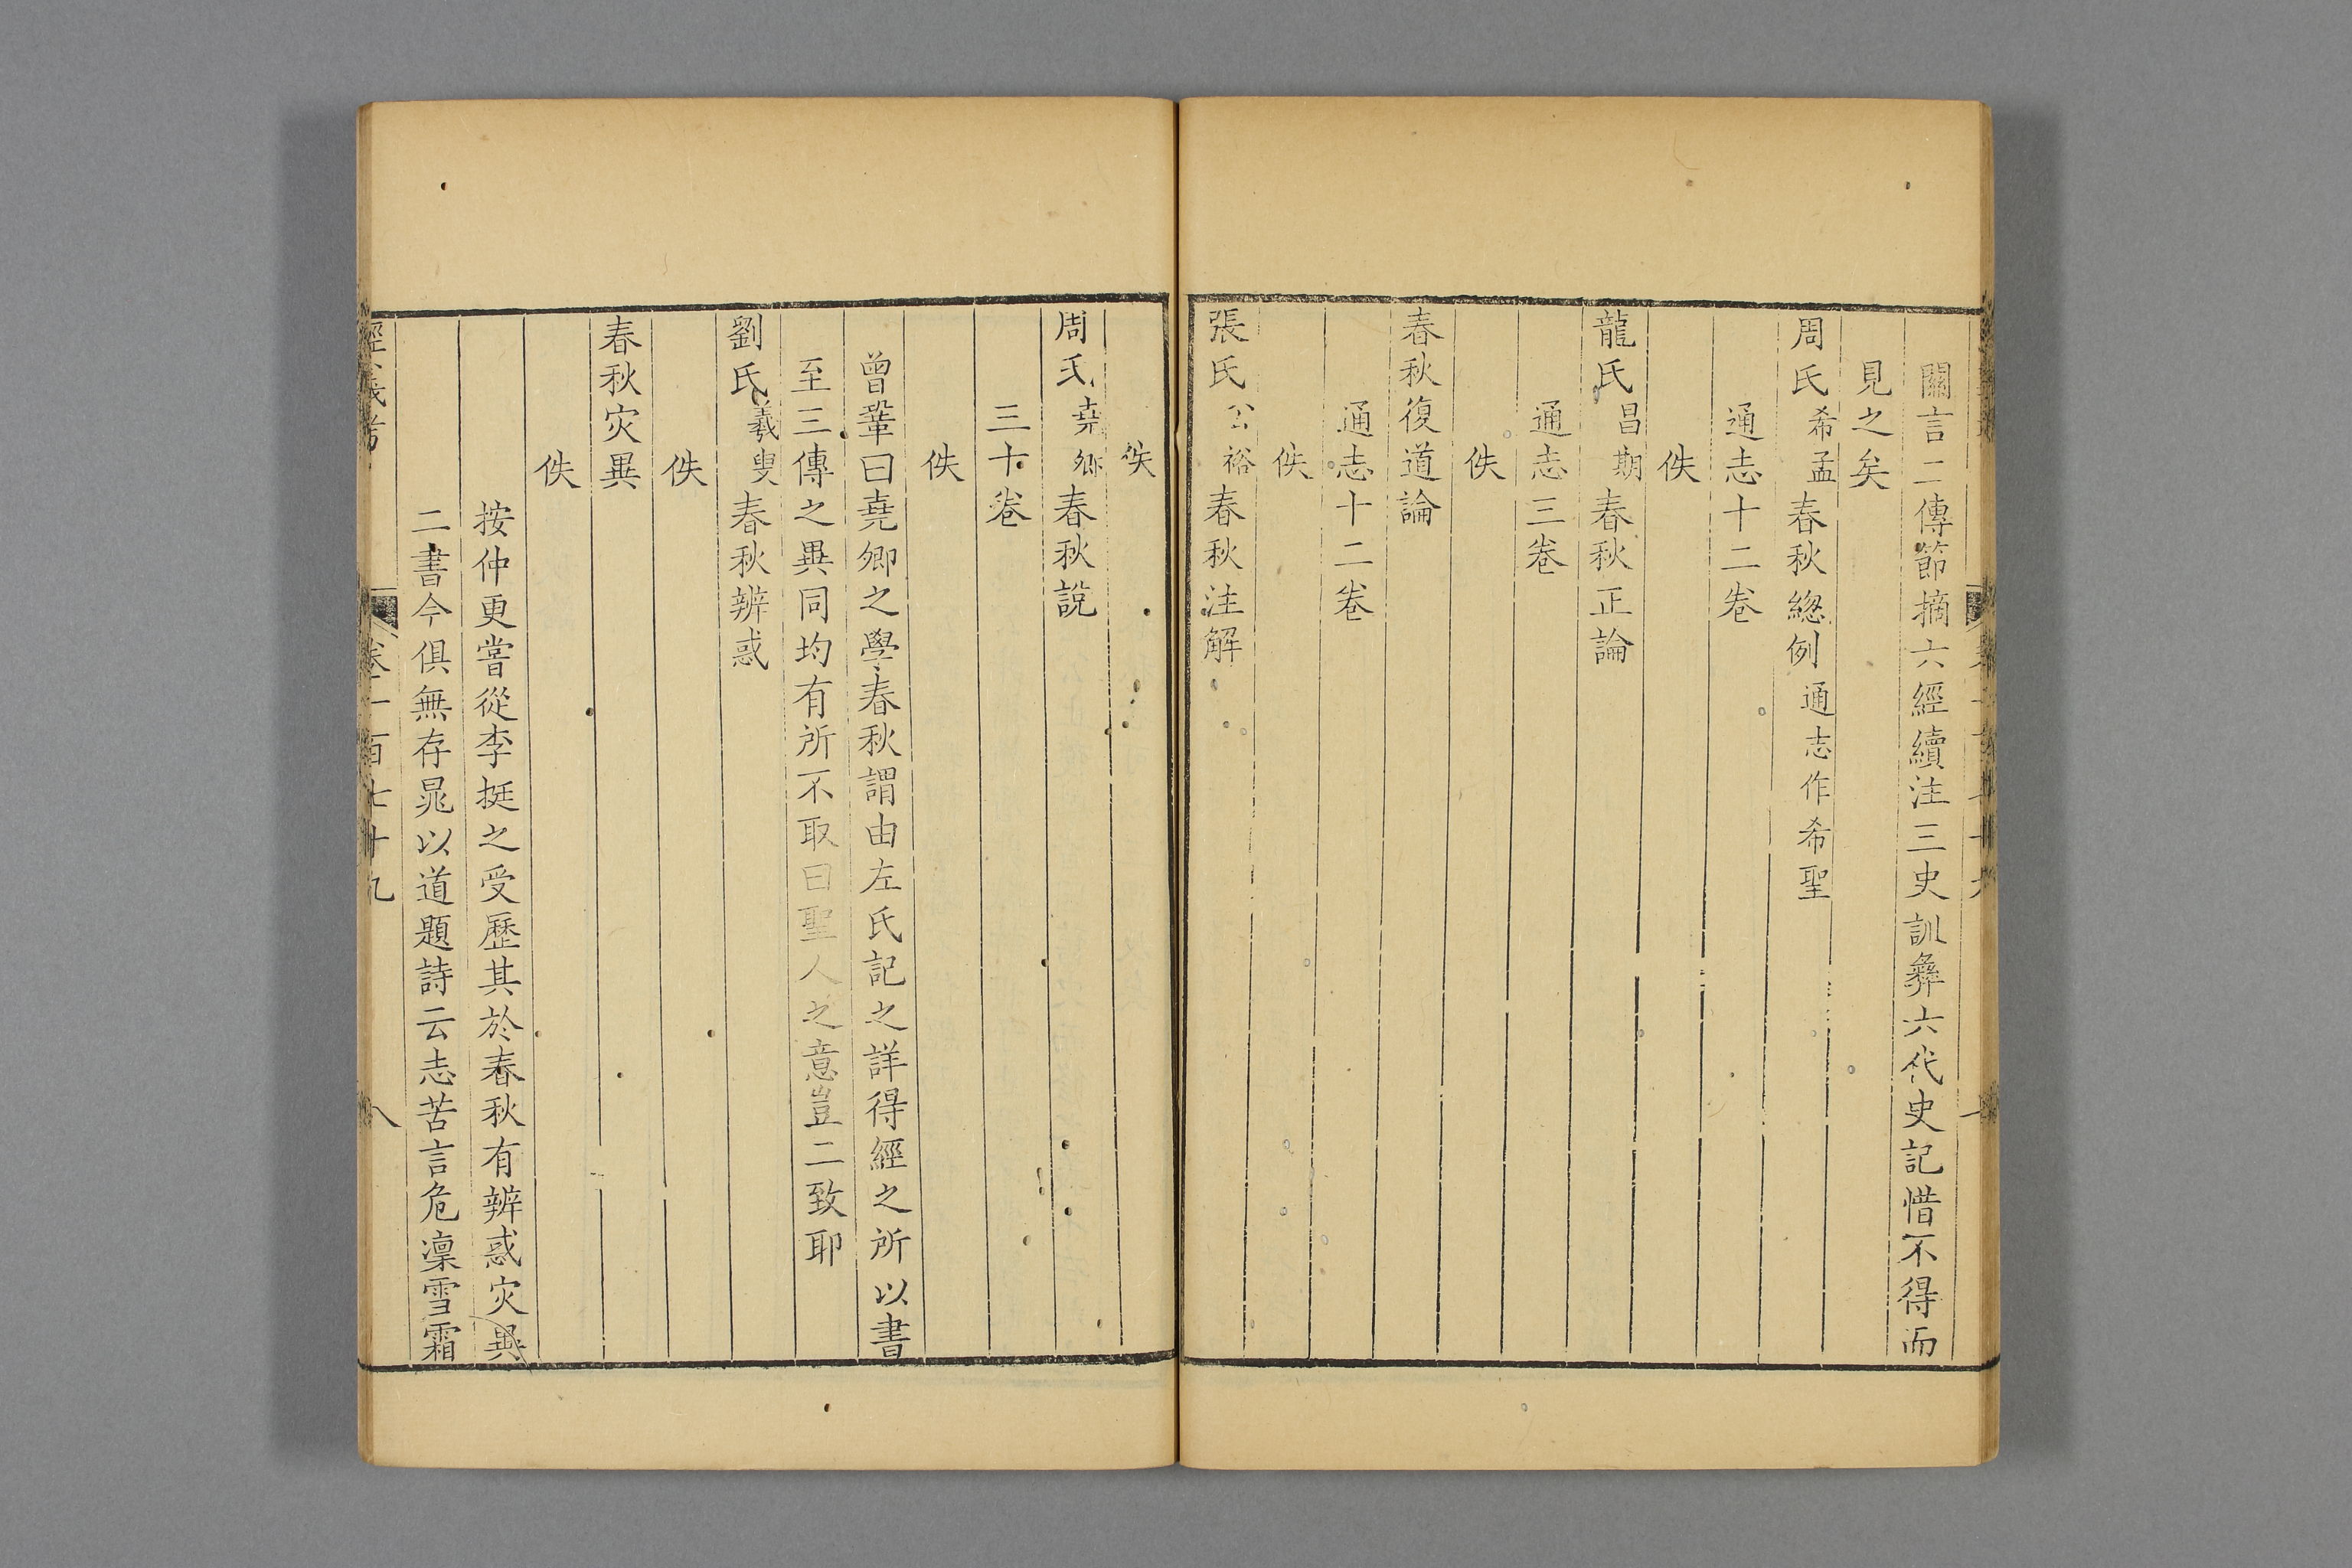 關言二傳節摘六經續注三史訓彝六代史記惜不得而
見之矣
周氏希孟春秋緫例通志作希聖
通志十二卷
佚
龍氏昌期春秋正論
通志三卷
佚
春秋復道論
通志十二卷
佚
張氏公裕春秋注解
佚
周氏堯卿春秋說
三十卷
佚
曾鞏曰堯卿之學春秋謂由左氏記之詳得經之所以書
至三傳之異同均有所不取曰聖人之意豈二致耶
劉氏羲叟春秋辨惑
佚
春秋灾異
佚
按仲更嘗從李挺之受歷其於春秋有辨惑灾異
二書今俱無存晁以道題詩云志苦言危凜雪霜
經義考 卷一百七十九 八